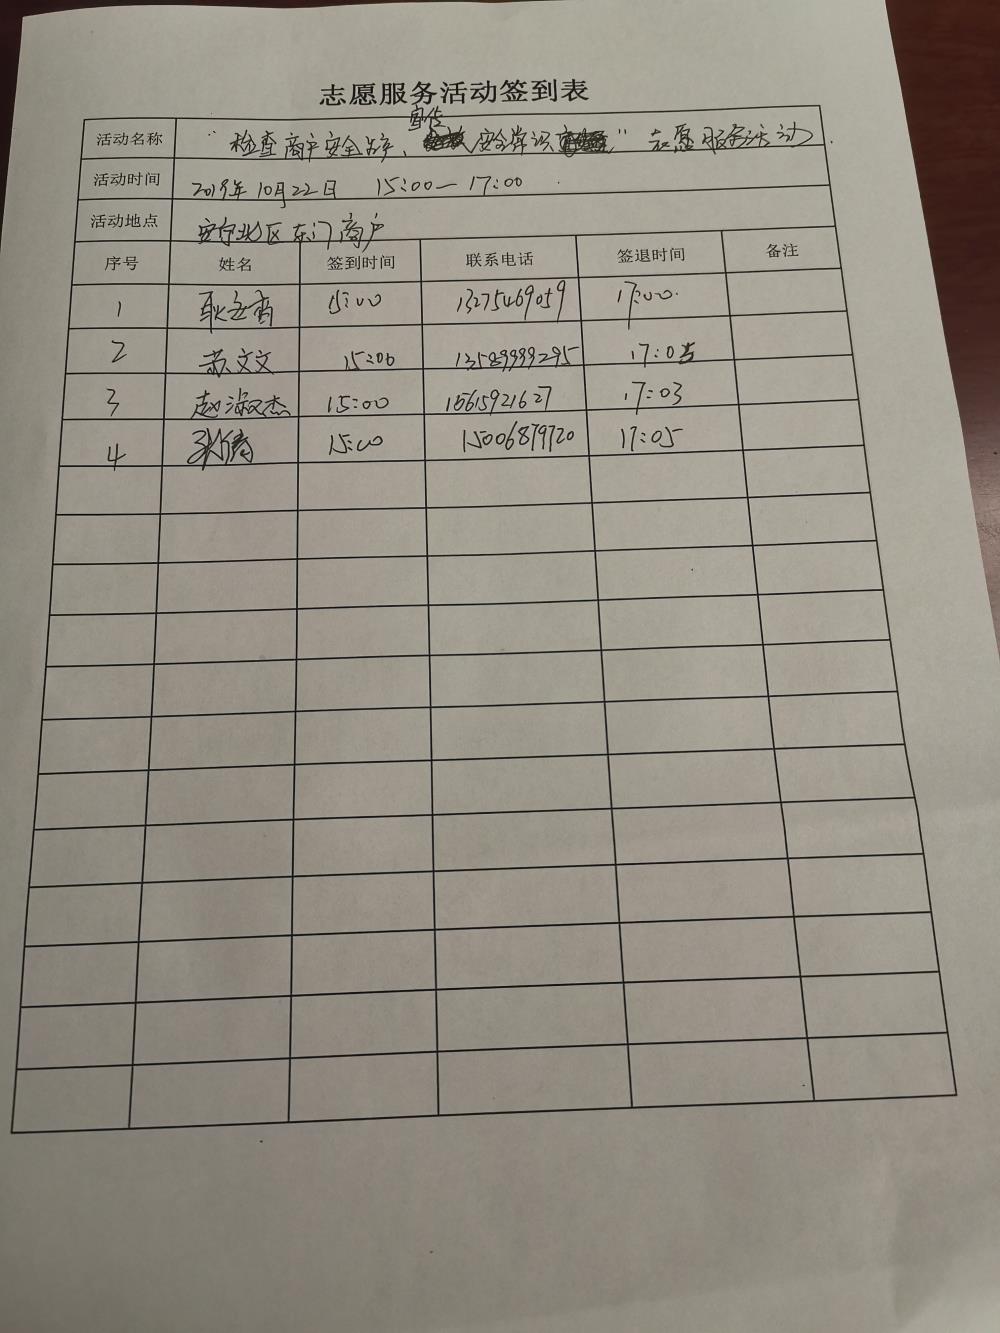 志愿服务活动签到表
宣传
活动名称 "检查商户安全生产、安全常识"志愿服务活动
活动时间 2019年10月22日 15:00—17:00
活动地点 安宁北区东门商户
序号 姓名 签到时间 联系电话 签退时间 备注
1 15:00 13275469059 17:00
2 苏文文 15:00 13589999295 17:05
3 赵淑杰 15:00 15615921627 17:03
4 15:00 15006879720 17:05